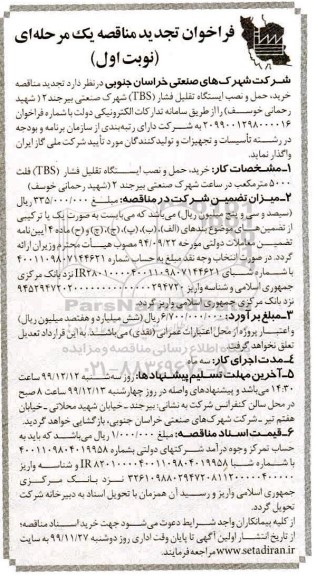 فراخوان تجدید مناقصه یک مرحله‌ای
(نوبت اول)
شرکت شهرک‌های صنعتی خراسان جنوبی در نظر دارد تجدید مناقصه
خرید، حمل و نصب ایستگاه تقلیل فشار (TBS) شهرک صنعتی بیرجند ۲ (شهید
رحمانی خوسف) را از طریق سامانه تدارکات الکترونیکی دولت با شماره فراخوان
۲۰۹۹۰۰۱۲۹۸۰۰۰۰۱۶ به شرکت دارای رتبه‌بندی از سازمان برنامه و بودجه
در رشته تأسیسات و تجهیزات و تولیدکنندگان مورد تأیید شرکت ملی گاز ایران
واگذار نماید.
۱-مشخصات کار: خرید، حمل و نصب ایستگاه تقلیل فشار (TBS) فلت
۵۰۰۰ مترمکعب در ساعت شهرک صنعتی بیرجند ۲ (شهید رحمانی خوسف)
۲-میزان تضمین شرکت در مناقصه: مبلغ ۳۳۵/۰۰۰/۰۰۰ ریال
(سیصد و سی و پنج میلیون ریال) می‌باشد که می‌بایست به صورت یک یا ترکیبی
از تضمین‌های موضوع بندهای (الف)، (ب)، (پ)، (ج)، (چ) و (ح) ماده ۴ آیین‌نامه
تضمین معاملات دولتی مورخه ۹۴/۰۹/۲۲ مصوب هیأت محترم وزیران ارائه
گردد. در صورت انتخاب وجه نقد مبلغ به حساب شماره ۴۰۰۱۱۰۹۸۰۷۱۴۴۶۲۱
با شماره شبای نزد بانک مرکزی
جمهوری اسلامی و شناسه واریز
نزد بانک مرکزی جمهوری اسلامی واریز گردد.
۳-مبلغ برآورد: ۶/۷۰۰/۰۰۰/۰۰۰ ریال (شش میلیارد و هفتصد میلیون ریال)
و اعتبار پروژه از محل اعتبارات عمرانی (نقدی) می‌باشند. به این قرارداد تعدیل
تعلق نخواهد گرفت.
۴-مدت اجرای کار: سه ماه
۵-آخرین مهلت تسلیم پیشنهادها: روز سه‌شنبه ۹۹/۱۲/۱۲ ساعت
۱۴:۳۰ می‌باشد و پیشنهادهای واصله در روز چهارشنبه ۹۹/۱۲/۱۳ ساعت ۸ صبح
در محل سالن کنفرانس شرکت به نشانی: بیرجند ـ خیابان شهید محلاتی ـ خیابان
هفتم تیر ـ شرکت شهرک‌های صنعتی خراسان جنوبی، بازگشایی خواهد گردید.
۶-قیمت اسناد مناقصه: مبلغ ۱/۰۰۰/۰۰۰ ریال می‌باشد که باید به
حساب تمرکز وجوه درآمد شرکتهای دولتی بشماره ۴۰۰۱۱۰۹۸۰۴۰۱۹۹۵۸
با شماره شبا و شناسه واریز
نزد بانک مرکزی
جمهوری اسلامی واریز و رسید آن همزمان با تحویل اسناد به دبیرخانه شرکت
تحویل گردد.
از کلیه پیمانکاران واجد شرایط دعوت می‌شود جهت خرید اسناد مناقصه؛
از تاریخ انتشار اولین آگهی تا پایان وقت اداری روز دوشنبه ۹۹/۱۱/۲۷ به سایت
www.setadiran.ir مراجعه فرمایند.